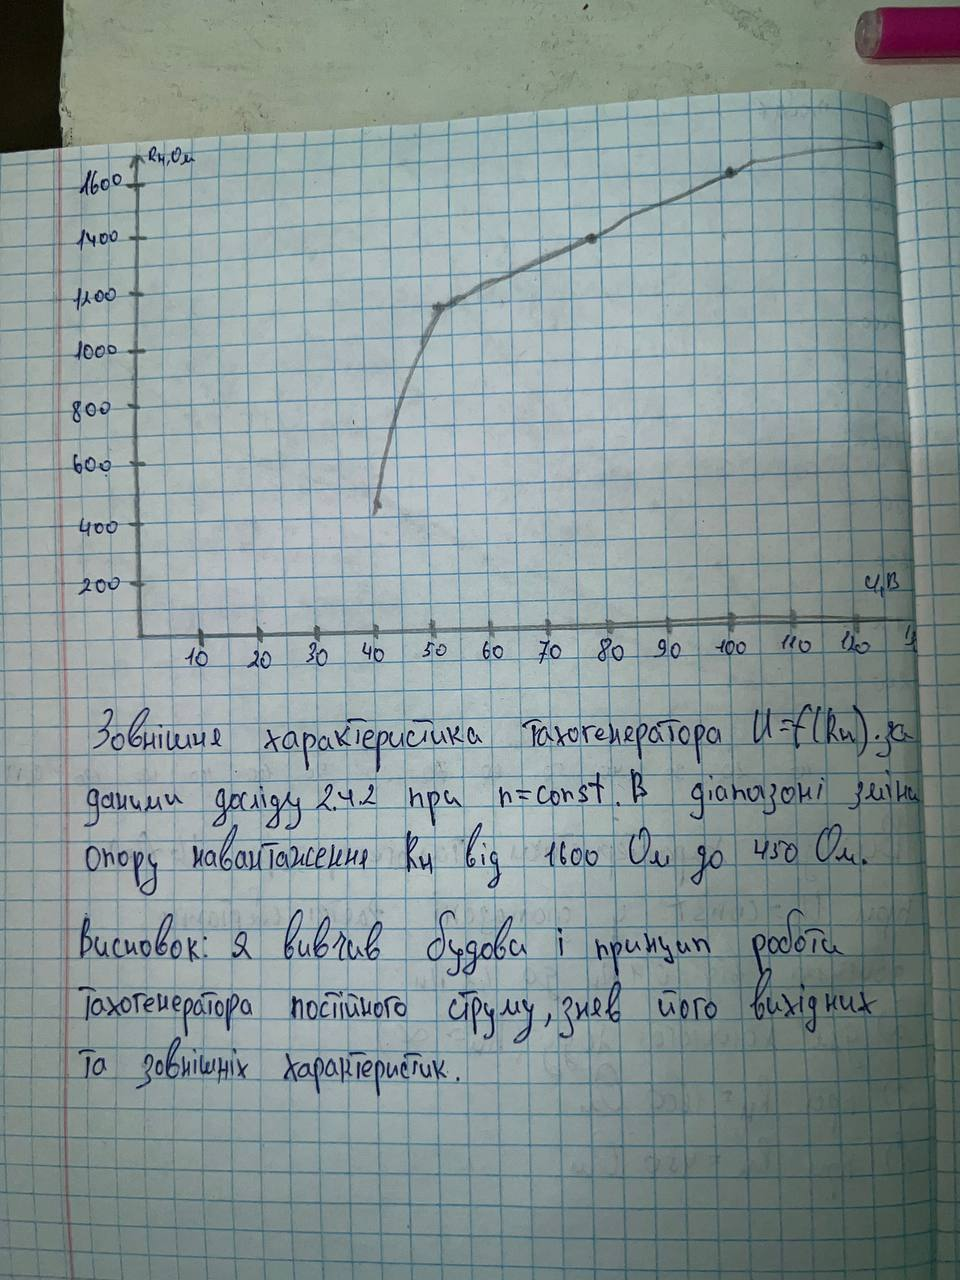 Rн, Ом
1600
1400
1200
1000
800
600
400
200
U, В
10 20 30 40 50 60 70 80 90 100 110 120
Зовнішня характеристика тахогенератора U=f(Rн). за
даними досліду 2.4.2 при n=const. В діапазоні зміни
опору навантаження Rн від 1600 Ом до 450 Ом.
Висновок: Я вивчив будова і принцип роботи
тахогенератора постійного струму, зняв його вихідних
та зовнішніх характеристик.